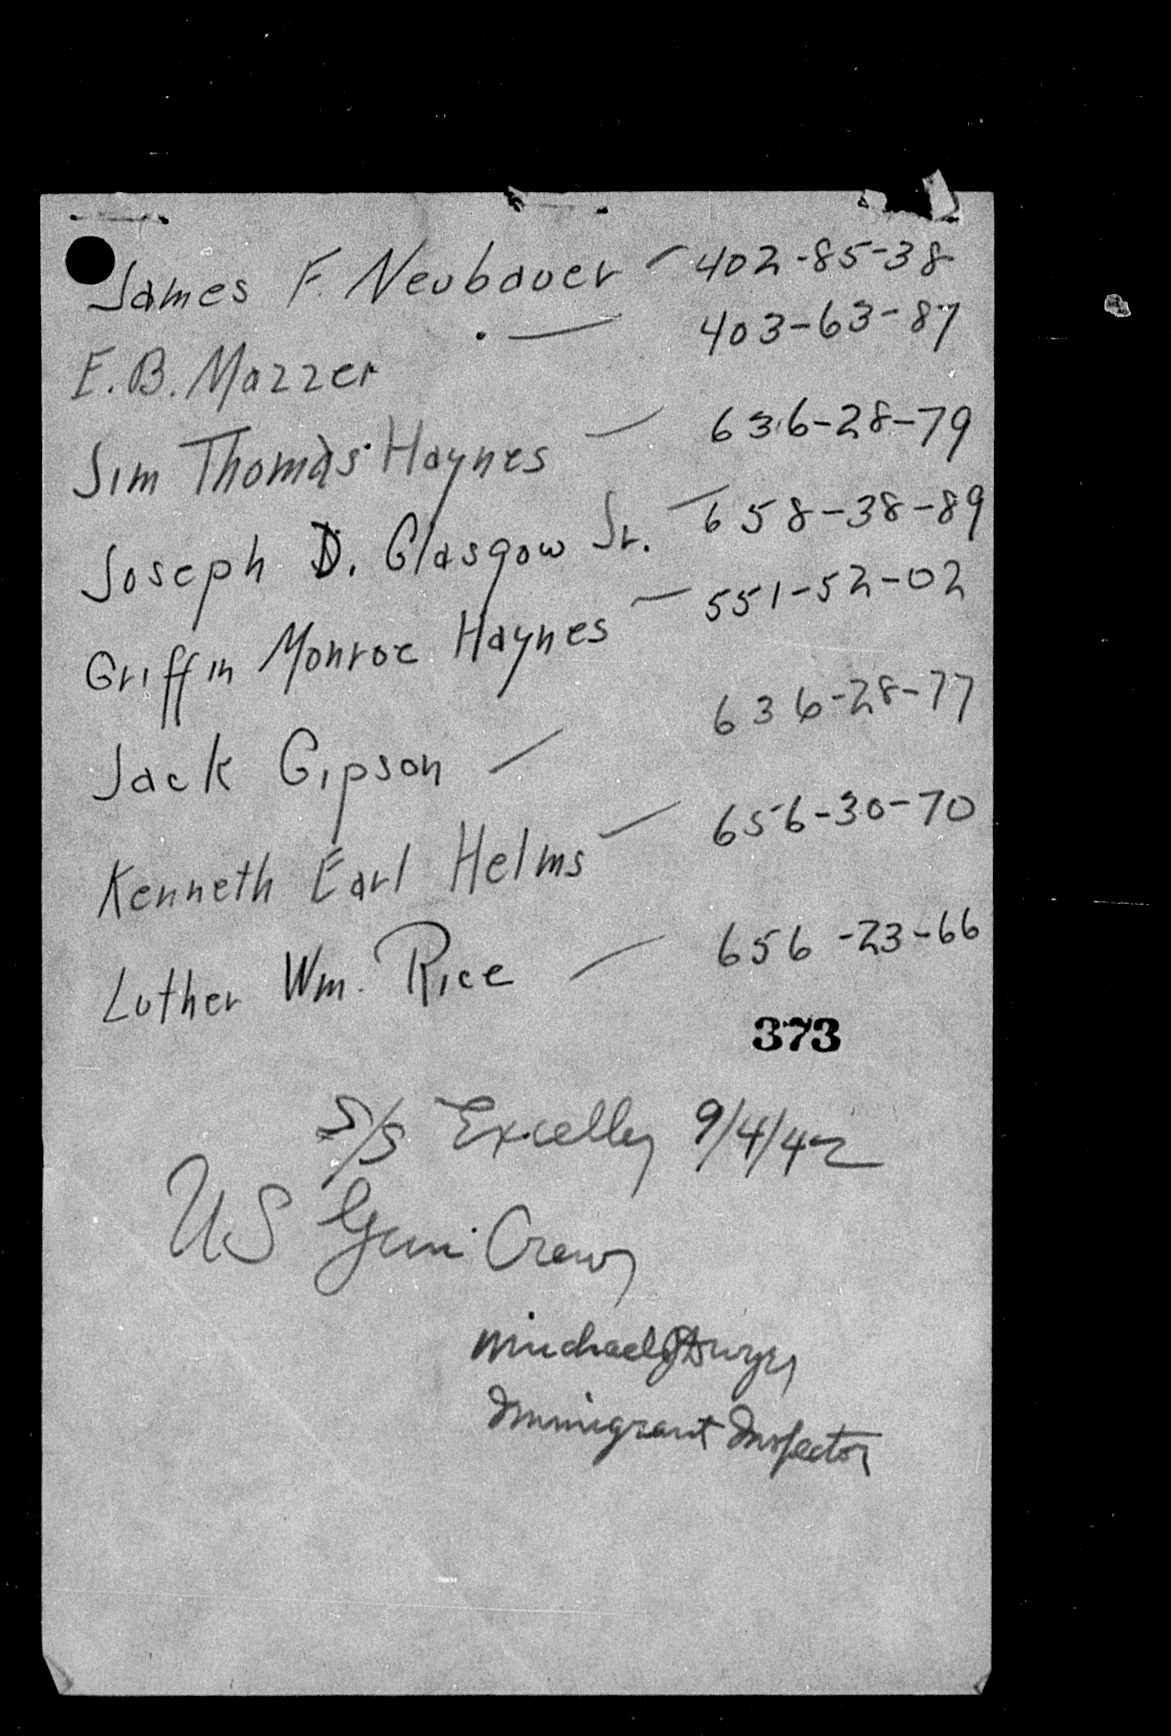 James F. Neubauer - 402-85-38
E.B. Mazzer - 403-63-87
Jim Thomas Haynes - 636-28-79
Joseph D. Glasgow Jr. - 658-38-89
Griffin Monroe Haynes - 551-52-02
Jack Gipson - 636-28-77
Kenneth Earl Helms - 656-30-70
Luther Wm. Rice - 656-23-66
373
S/S Excelley 9/4/42
US Gun Crew
Michael J Dwyer
Immigrant Inspector